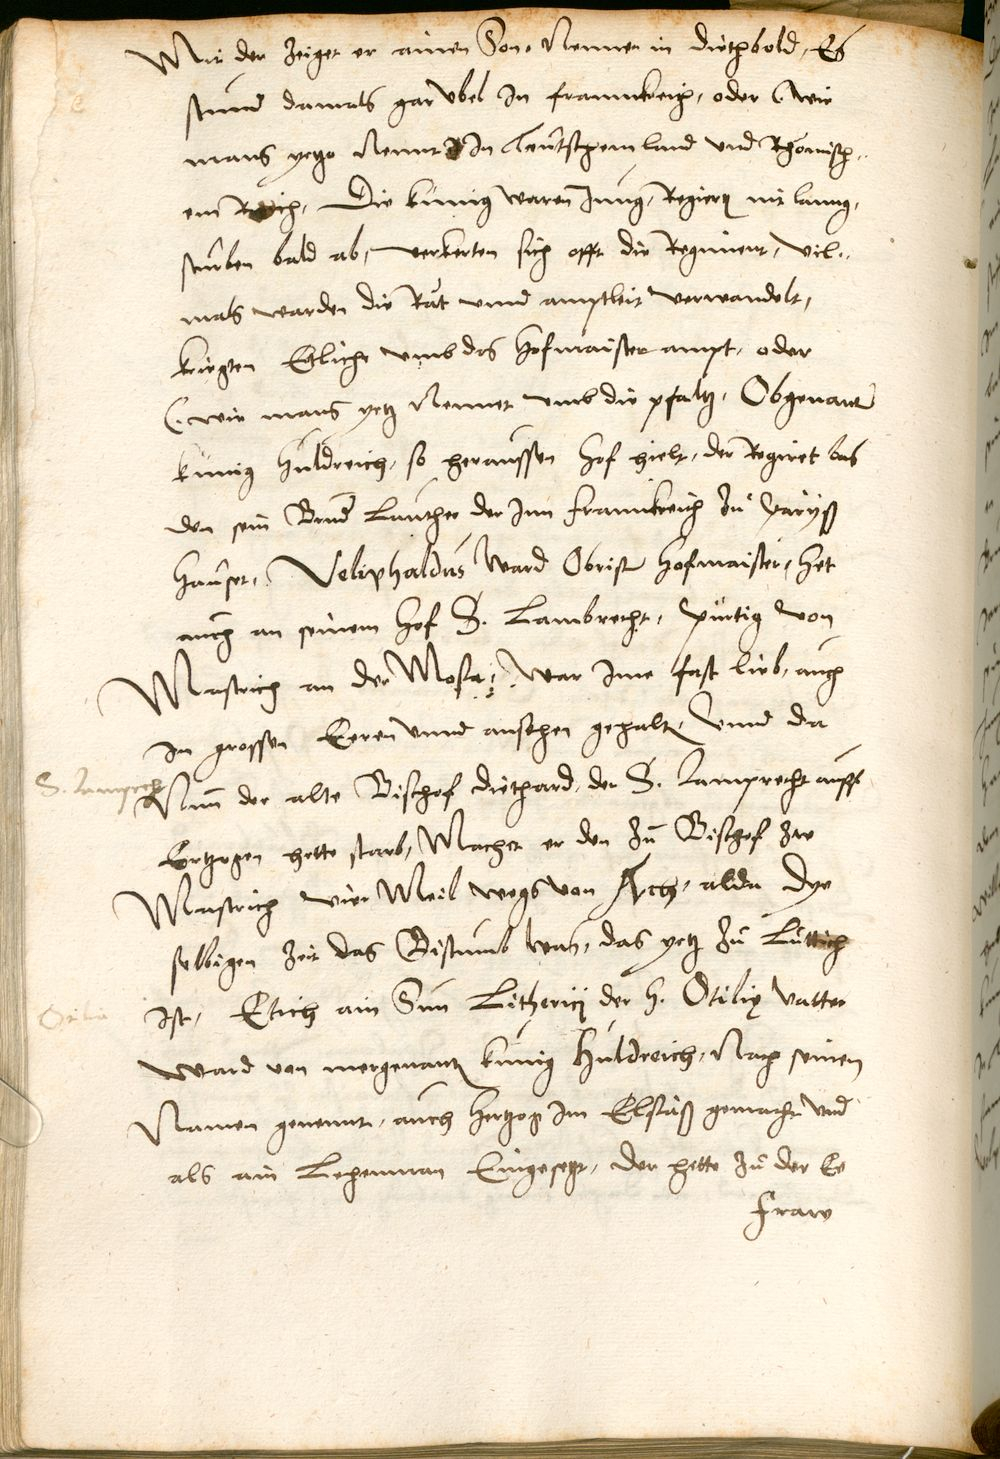 Mit der zeiget er ainen Son, Nennet in diethbold, Es
stuend damals gar Vbel In frannkreich, oder (wie
mans yetzo Nennt In Teutschem land vnd Rhömisch-
em Reich, Die künig waren Jung, Regierten nit lanng,
sturben bald ab, verkerten sich offt die Regiment, vil-
mals warden die Rät vnnd amptleit verwandelt,
kriegten Etliche vmb das Hofmaister ampt, oder
(wie mans yetz Nennet vmb die pfaltz, Obgenanter
künig Huldreich, so heraussen hof hielt, der Regiret bas
den sein Brued Lauther der Jnn frannkreich zu Paryß
hauset, Veliphaldus ward Obrister Hofmaister, het
auch an seinem hof S. Lambrecht, pürtig von
Mastrich an der Mosa, war Ime fast lieb, auch
in grossen Eeren vnnd ansehen gehalten, vnnd da
S. Lamprecht
Nun der alte Bischof diethard, der S. Lamprecht auff
Ertzogen hette starb, Machet er den zu Bischof zw
Mastrich vier Meil wegs von Ach, alda dye
selbigen zeit das Bistumb was, das yetz zu Lüttich
Otilia
ist, Etich ain Sun Litherici der h. Otilie vatter
ward von mergenantem künig Huldreich, Nach seinen
Namen genennt, auch hertzog Im Elsäß gemacht vnd
als ain Lehenman Eingesetzt, der hette zu der Ee
fraw